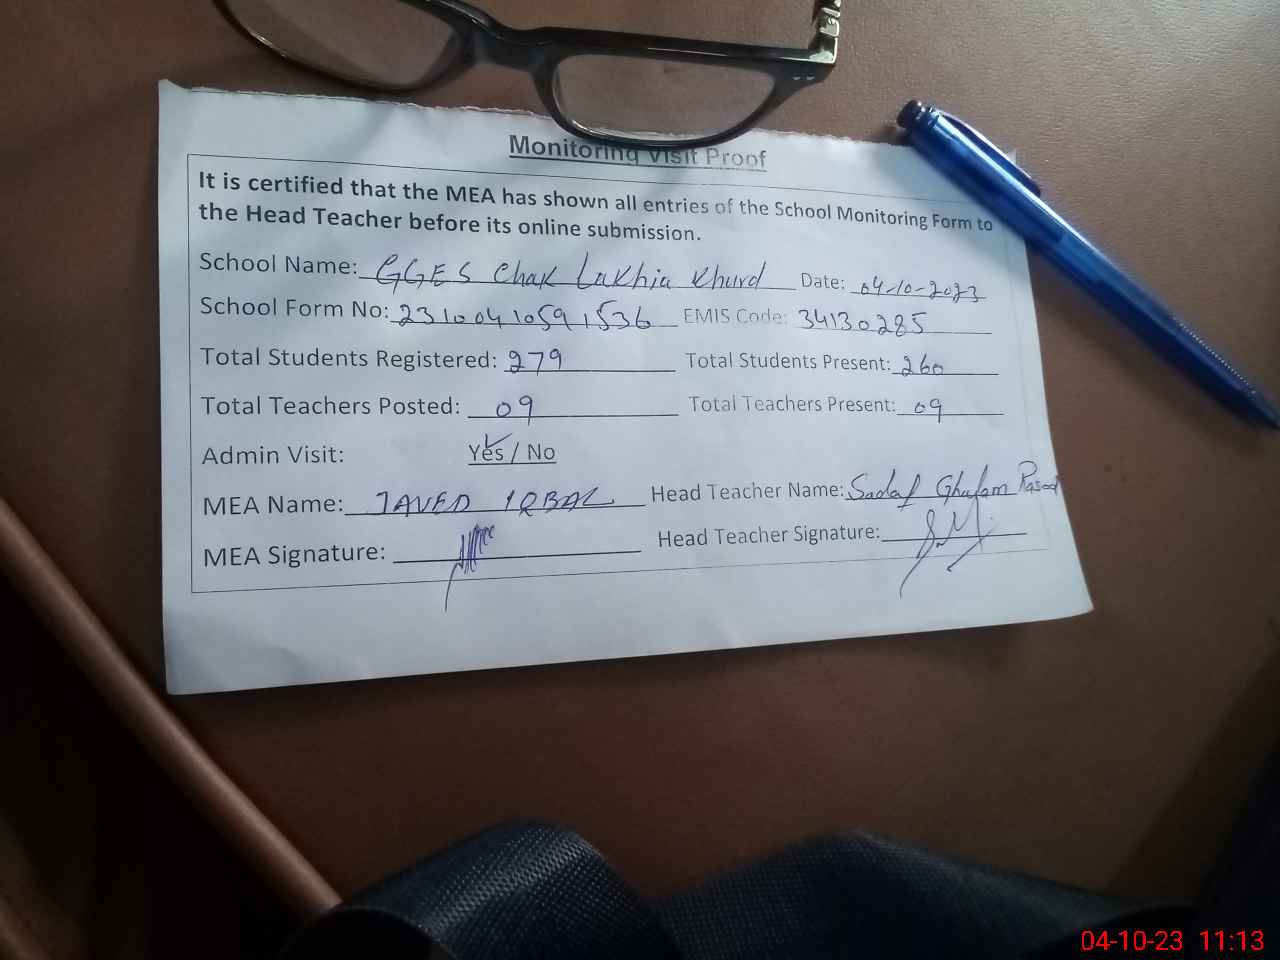 Monitoring Visit Proof
It is certified that the MEA has shown all entries of the School Monitoring Form to
the Head Teacher before its online submission.
School Name: GGES Chak Lakhia Khurd Date: 04-10-2023
School Form No: 23100410591536 EMIS Code: 34130285
Total Students Registered: 279 Total Students Present: 260
Total Teachers Posted: 09 Total Teachers Present: 09
Admin Visit: Yes / No
MEA Name: JAVED IQBAL Head Teacher Name: Sadaf Ghulam Rasool
MEA Signature: Head Teacher Signature:
04-10-23 11:13